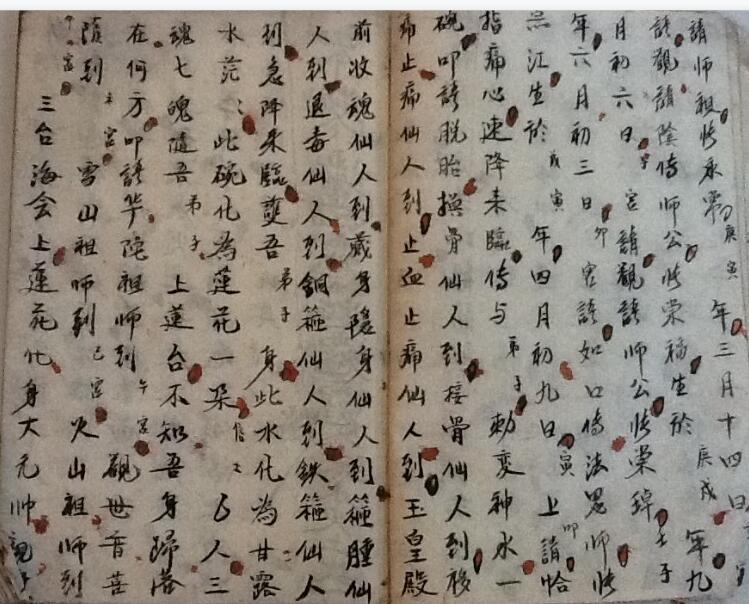 請師祖張永寧庚寅年三月十四日
請觀請陰傳師公張榮福生於庚戌年九
月初六日子宮請觀請師公張榮璋壬子
年六月初三日卯宮請如口傳法恩師張
江生於戊寅年四月初九日寅卯上請
指痛心速降来臨傳与弟子勅変神水一
碗叩請脱胎換骨仙人到接骨仙人到
止痛仙人到止血止痛仙人到玉皇殿
前收魂仙人到藏身隱身仙人到箍腫仙
人到退毒仙人到銅箍仙人到鉄箍仙人
到急降来臨變吾弟子身此水化為甘露
水茫〻此碗化為蓮花一朵人三
魂七魄隨吾弟子上蓮台不知吾身歸落
在何方叩請华陀祖師到午宮觀世音菩
薩到未宮雪山祖師到己宮火山祖師到
三台海会上蓮花化身大元帅親手